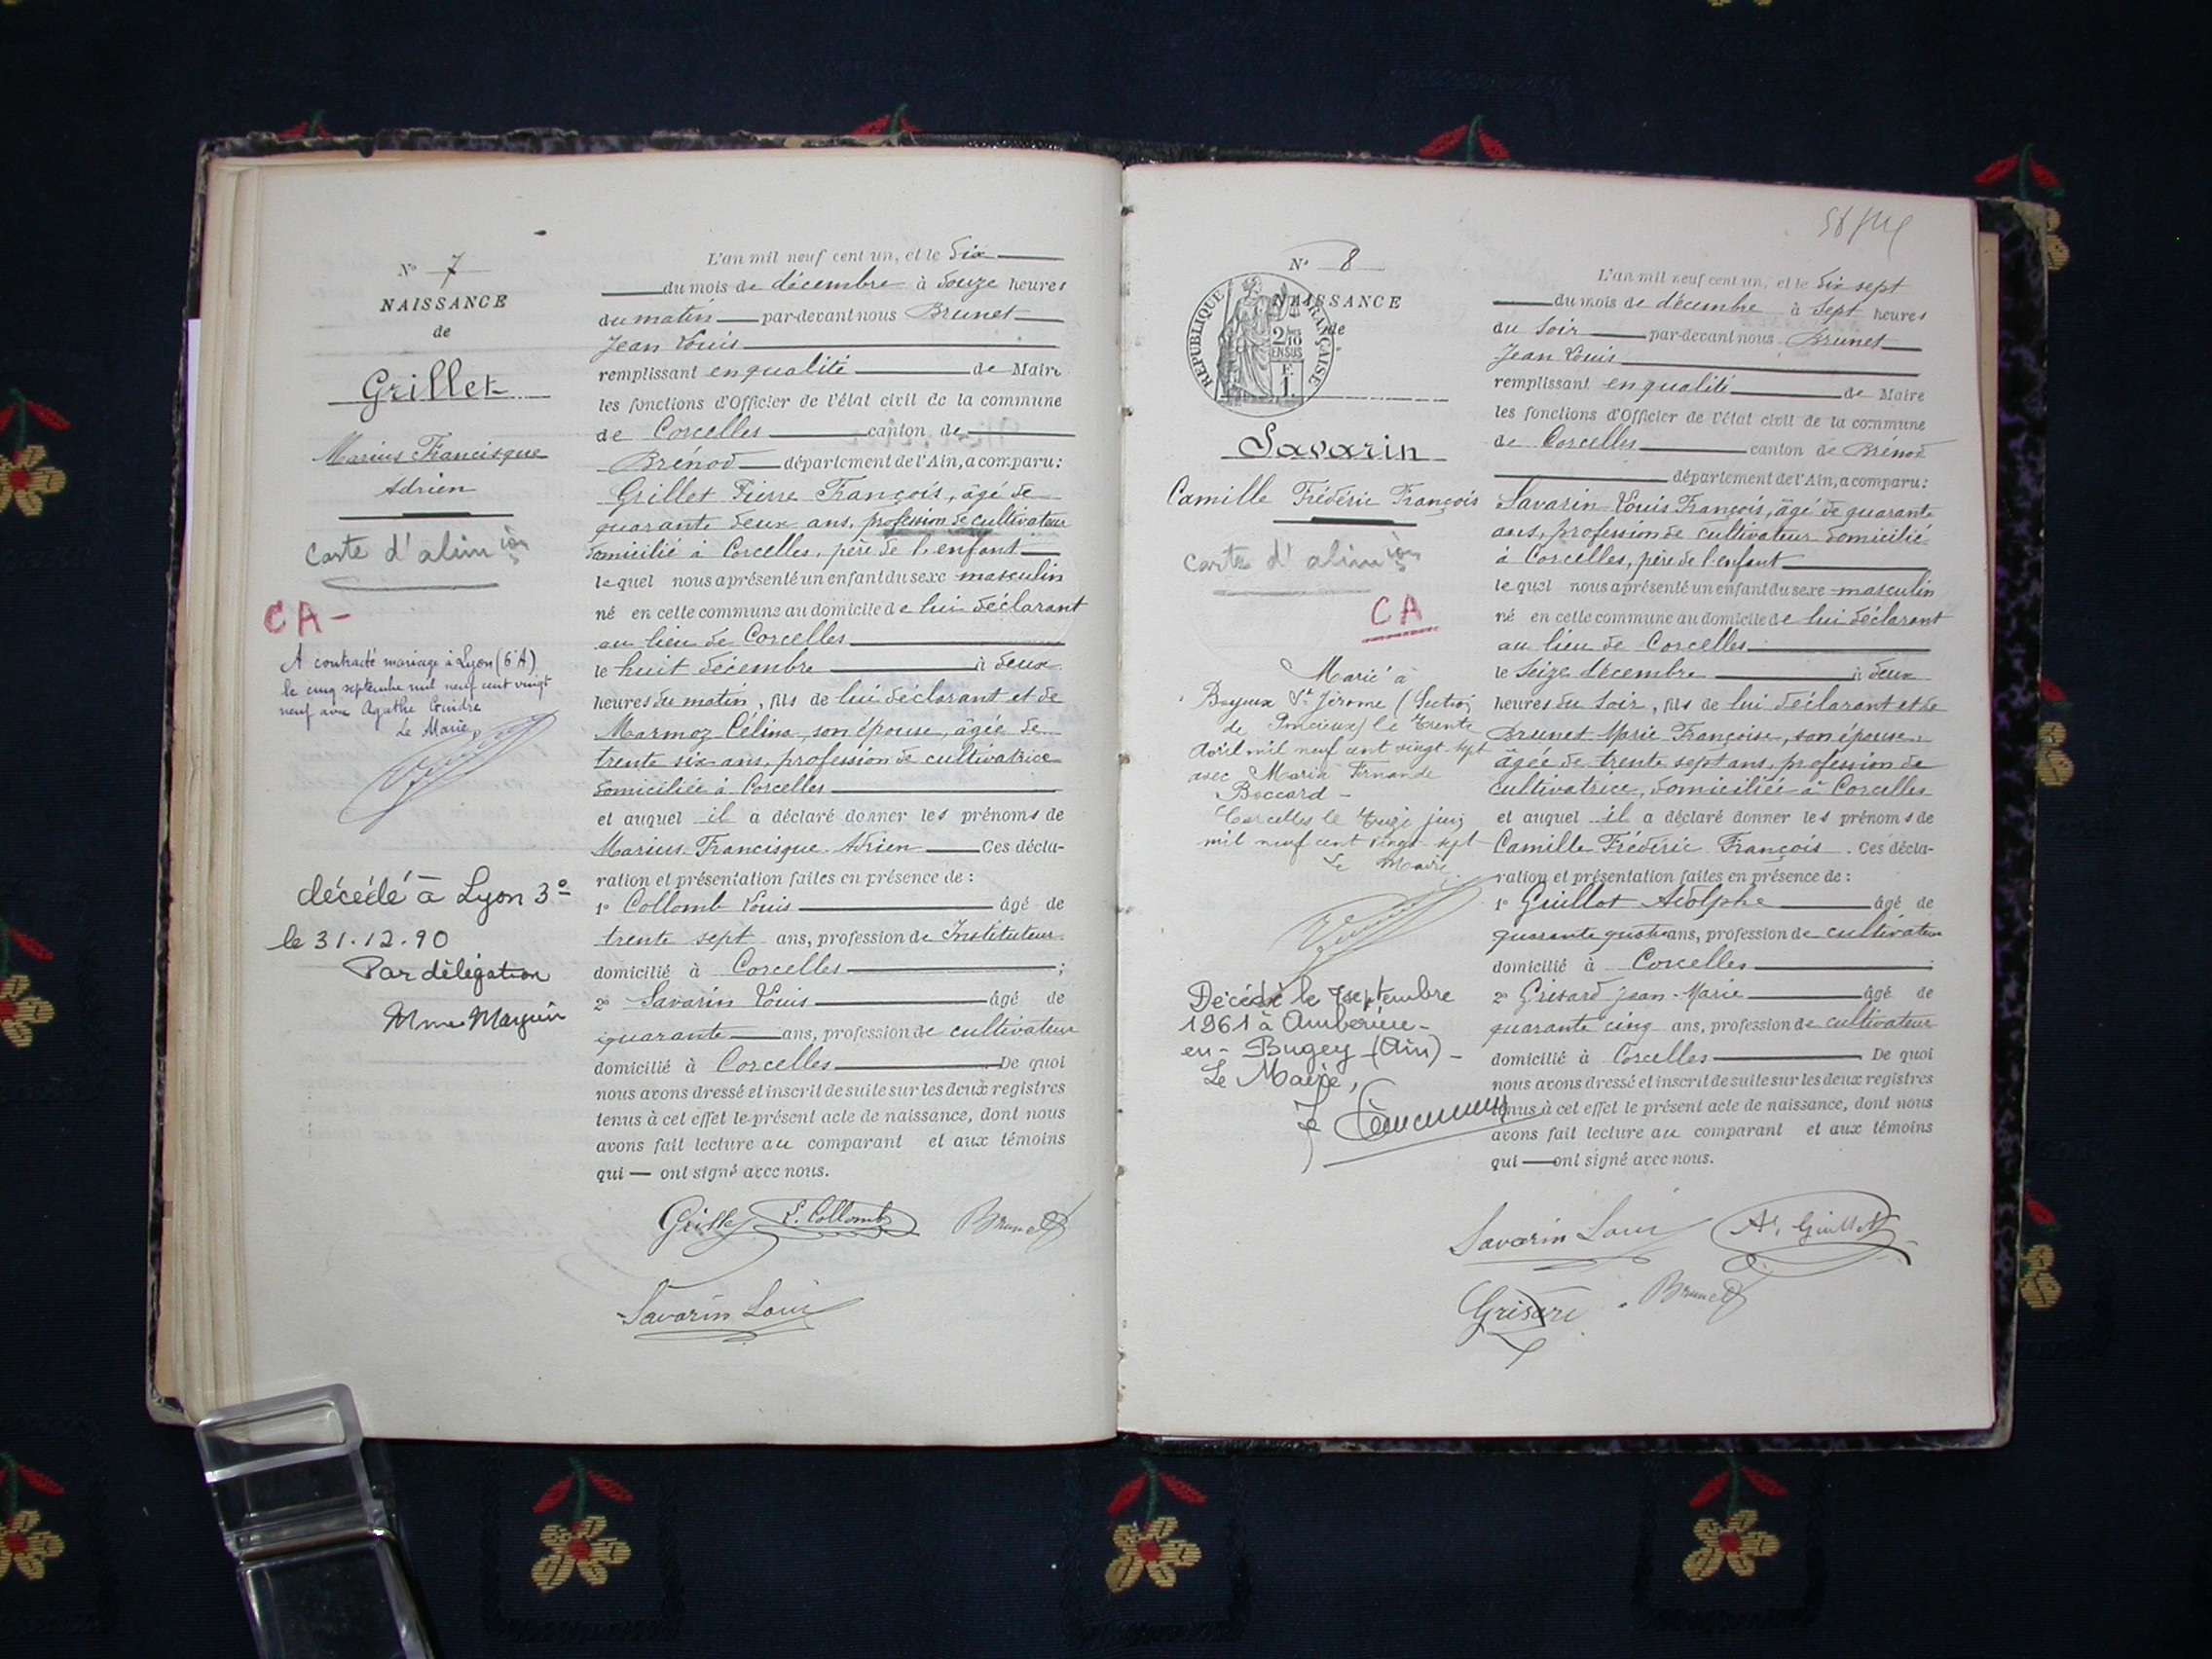 N° 7
NAISSANCE
de
Grillet
Marius Francisque
Adrien
Carte d'alim ion
CA -
A contracté mariage à Lyon (6e A)
le cinq septembre mil neuf cent vingt
neuf avec Agathe
Le Maire,
décédé à Lyon 3e
le 31.12.90
Par délégation
Mme
L'an mil neuf cent un, et le Dix
du mois de décembre à Douze heures
du matin par-devant nous Brunet
Jean Louis
remplissant en qualité de Maire
les fonctions d'Officier de l'état civil de la commune
de Corcelles canton de
Brénod département de l'Ain, a comparu :
Grillet Pierre François, âgé de
quarante deux ans, profession de cultivateur
domicilié à Corcelles, père de l'enfant
lequel nous a présenté un enfant du sexe masculin
né en cette commune au domicile de lui déclarant
au lieu de Corcelles
le huit décembre à deux
heures du matin, fils de lui déclarant et de
Marmoz Célina, son épouse, âgée de
trente six ans, profession de cultivatrice
domiciliée à Corcelles
et auquel il a déclaré donner les prénoms de
Marius Francisque Adrien Ces décla-
ration et présentation faites en présence de :
1° Collomb Louis âgé de
trente sept ans, profession de Instituteur
domicilié à Corcelles ;
2° Savarin Louis âgé de
quarante ans, profession de cultivateur
domicilié à Corcelles De quoi
nous avons dressé et inscrit de suite sur les deux registres
tenus à cet effet le présent acte de naissance, dont nous
avons fait lecture au comparant et aux témoins
qui ont signé avec nous.
Grillet L. Collomb Brunet
Savarin Louis
N° 8
NAISSANCE
de
RÉPUBLIQUE FRANÇAISE
2/10
EN SUS
F.
1.
Savarin
Camille Frédéric François
Carte d'alim ion
CA
Marié à
Boyeux St Jérome (Section
de Poncieux) le trente
Avril mil neuf cent vingt-sept
avec Maria Fernande
Boccard -
Corcelles le treize juin
mil neuf cent vingt-sept
Le Maire
Décédé le 7 septembre
1961 à Ambérieu-
en-Bugey (Ain) -
Le Maire,
L'an mil neuf cent un, et le Dix sept
du mois de décembre à Sept heures
du Soir par-devant nous Brunet
Jean Louis
remplissant en qualité de Maire
les fonctions d'Officier de l'état civil de la commune
de Corcelles canton de Brénod
département de l'Ain, a comparu :
Savarin Louis François, âgé de quarante
ans, profession de cultivateur domicilié
à Corcelles, père de l'enfant
lequel nous a présenté un enfant du sexe masculin
né en cette commune au domicile de lui déclarant
au lieu de Corcelles
le Seize décembre à deux
heures du Soir, fils de lui déclarant et de
Brunet Marie Françoise, son épouse
âgée de trente sept ans, profession de
cultivatrice, domiciliée à Corcelles
et auquel il a déclaré donner les prénoms de
Camille Frédéric François. Ces décla-
ration et présentation faites en présence de :
1° Guillot Adolphe âgé de
quarante quatre ans, profession de cultivateur
domicilié à Corcelles ;
2° Grisard Jean-Marie âgé de
quarante cinq ans, profession de cultivateur
domicilié à Corcelles De quoi
nous avons dressé et inscrit de suite sur les deux registres
tenus à cet effet le présent acte de naissance, dont nous
avons fait lecture au comparant et aux témoins
qui ont signé avec nous.
Savarin Louis Ad. Guillot
Grisard Brunet